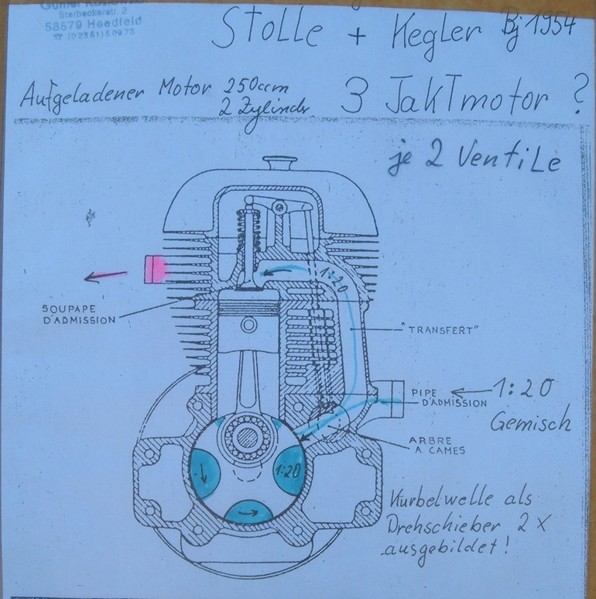 Sterbeckerstr. 2
58579 Heedfeld
Stolle + Kegler Bj 1954
Aufgeladener Motor 250ccm
2 Zylinder
3 TakTmotor ?
je 2 VentiLe
1:20
SOUPAPE
D'ADMISSION
"TRANSFERT"
PIPE
D'ADMISSION
1:20
Gemisch
ARBRE
A CAMES
1:20
Kurbelwelle als
Drehschieber 2 x
ausgebildet!